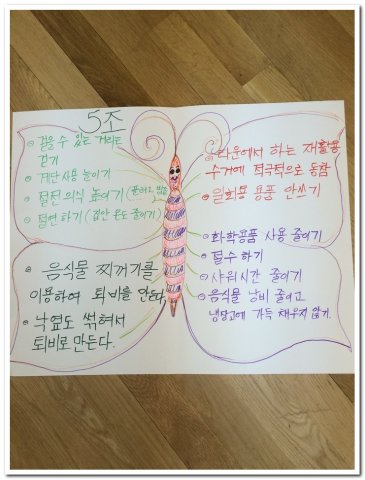 5조
• 걸을 수 있는 거리는
걷기
• 계단사용 높이기
• 절전 의식 높이기
• 절연하기 (집안 온도 줄이기)
• 음식물 찌꺼기를
이용하여 퇴비를 만든다
• 낙엽도 썪혀서
퇴비로 만든다.
타운에서 하는 재활용
수거에 적극적으로 동참
• 일회용 용품 안쓰기
• 화학용품 사용 줄이기
• 절수 하기
• 샤워시간 줄이기
• 음식물 낭비 줄이고
냉장고에 가득 채우지 않기.